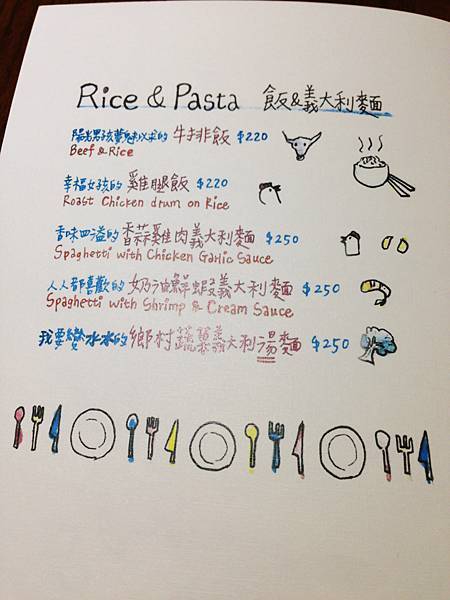 Rice & Pasta 飯&義大利麵
陽光男孩夢寐以求的 牛排飯 $220
Beef & Rice
幸福女孩的 雞腿飯 $220
Roast Chicken drum on Rice
香味四溢的 香蒜雞肉義大利麵 $250
Spaghetti with Chicken Garlic Sauce
人人都喜歡的 奶油鮮蝦義大利麵 $250
Spaghetti with Shrimp & Cream Sauce
我要變水水的 鄉村蔬菜義大利湯麵 $250